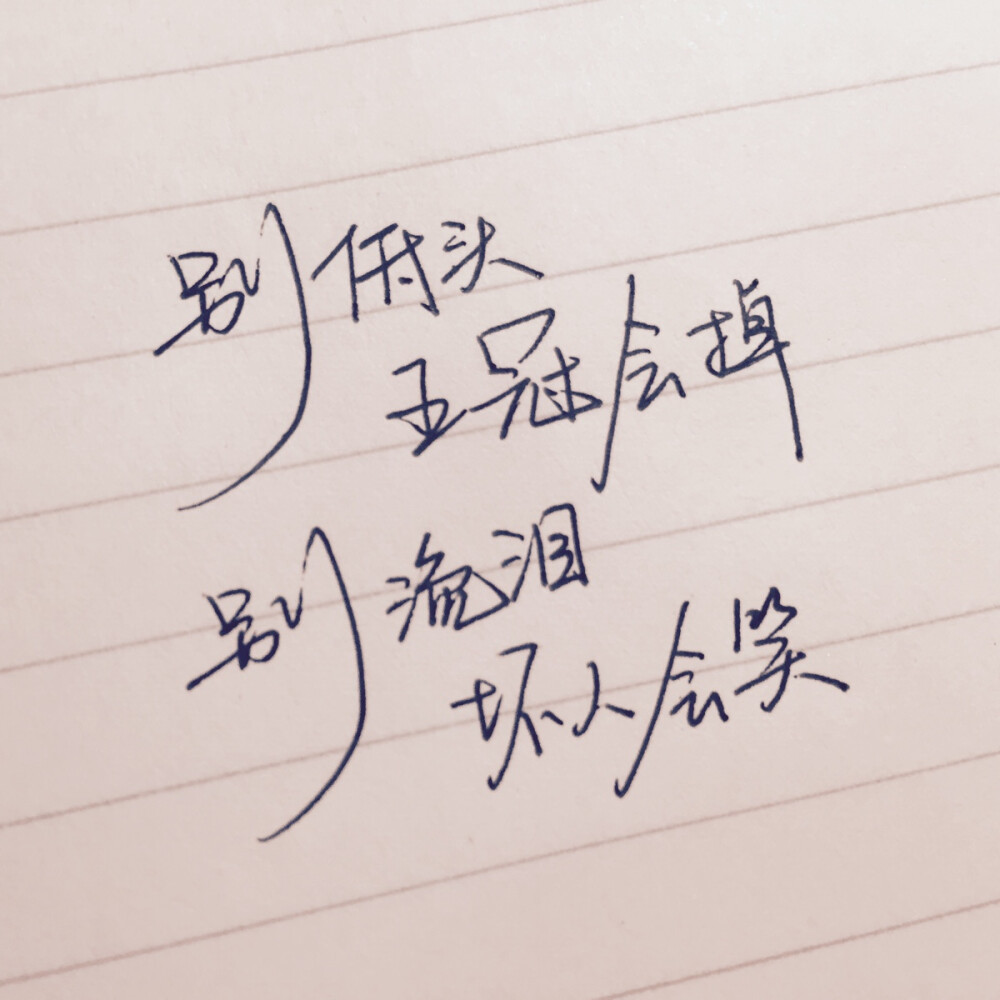 别俯头
王冠会掉
别流泪
坏人会笑